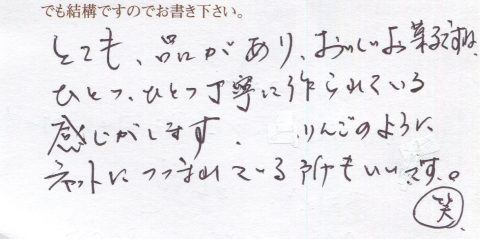 でも結構ですのでお書き下さい。
とても、品があり、おいしいお菓子ですね、
ひとつ、ひとつ丁寧に作られている
感じがします、 りんごのように
ネットにつつまれている所もいいです。。
笑